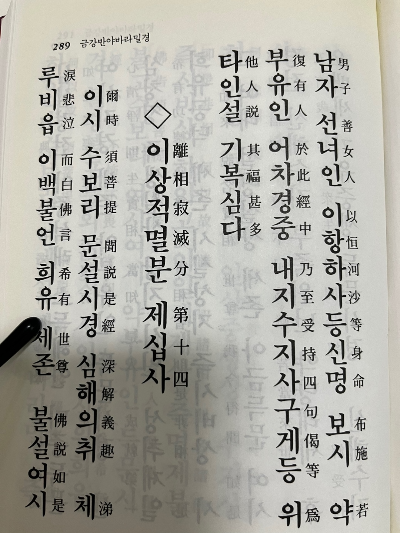 289 금강반야바라밀경
남자 선녀인 이항하사등신명 보시 약
男子 善女人 以恒河沙等身命 布施 若
부유인 어차경중 내지수지사구게등 위
復有人 於此經中 乃至受持四句偈等 爲
타인설 기복심다
他人説 其福甚多
◇ 이상적멸분 제십사
離相寂滅分 第十四
이시 수보리 문설시경 심해의취 체
爾時 須菩提 聞説是經 深解義趣 涕
루비읍 이백불언 희유 세존 불설여시
淚悲泣 而白佛言 希有 世尊 佛説如是